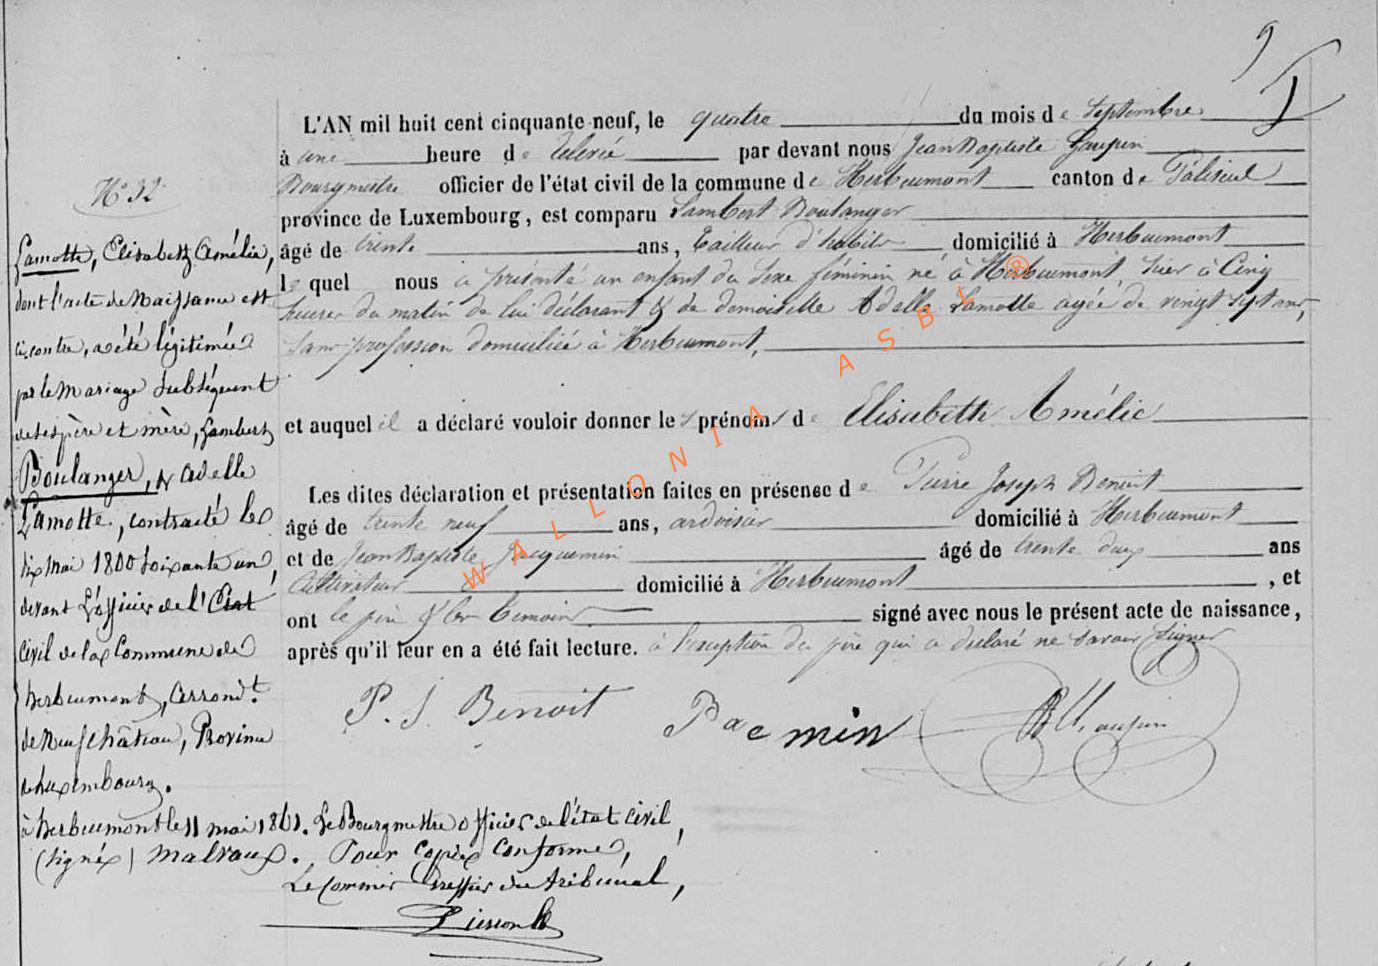 9
L'AN mil huit cent cinquante-neuf, le quatre du mois de Septembre
à une heure de relevée par devant nous Jean Baptiste Gaupin
Bourgmestre officier de l'état civil de la commune de Herbeumont canton de Paliseul
province de Luxembourg, est comparu Lambert Boulanger
âgé de trente ans, tailleur d'habits domicilié à Herbeumont
le quel nous a présenté un enfant du sexe féminin né à Herbeumont, hier à Cinq
heures du matin de lui déclarant & de demoiselle Adelle Lamotte agée de vingt sept ans,
sans profession domiciliée à Herbeumont,
et auquel il a déclaré vouloir donner les prénoms de Elisabeth Amélie
Les dites déclaration et présentation faites en présence de Pierre Joseph Benoit
âgé de trente neuf ans, ardoisier domicilié à Herbeumont
et de Jean Baptiste Jacquemin âgé de trente deux ans
Cultivateur domicilié à Herbeumont, et
ont le père & les témoins signé avec nous le présent acte de naissance,
après qu'il leur en a été fait lecture. à l'exception du père qui a déclaré ne savoir signer
P. J. Benoit
N° 32
Lamotte, Elisabeth Amélie,
dont l'acte de Naissance est
ci contre, a été légitimée
par le Mariage subséquent
de ses père et mère, Lambert
Boulanger, & Adelle
Lamotte, contracté le
dix mai 1800 soixante un,
devant l'officier de l'Etat
Civil de la Commune de
herbeumont, arrondt.
de Neufchâteau, Province
de Luxembourg.
à herbeumont le 11 mai 1861. Le Bourgmestre officier de l'état civil,
(signé) Malvaux. Pour copie conforme,
Le Commis Greffier du tribunal,
WALLONIA ASBL ®